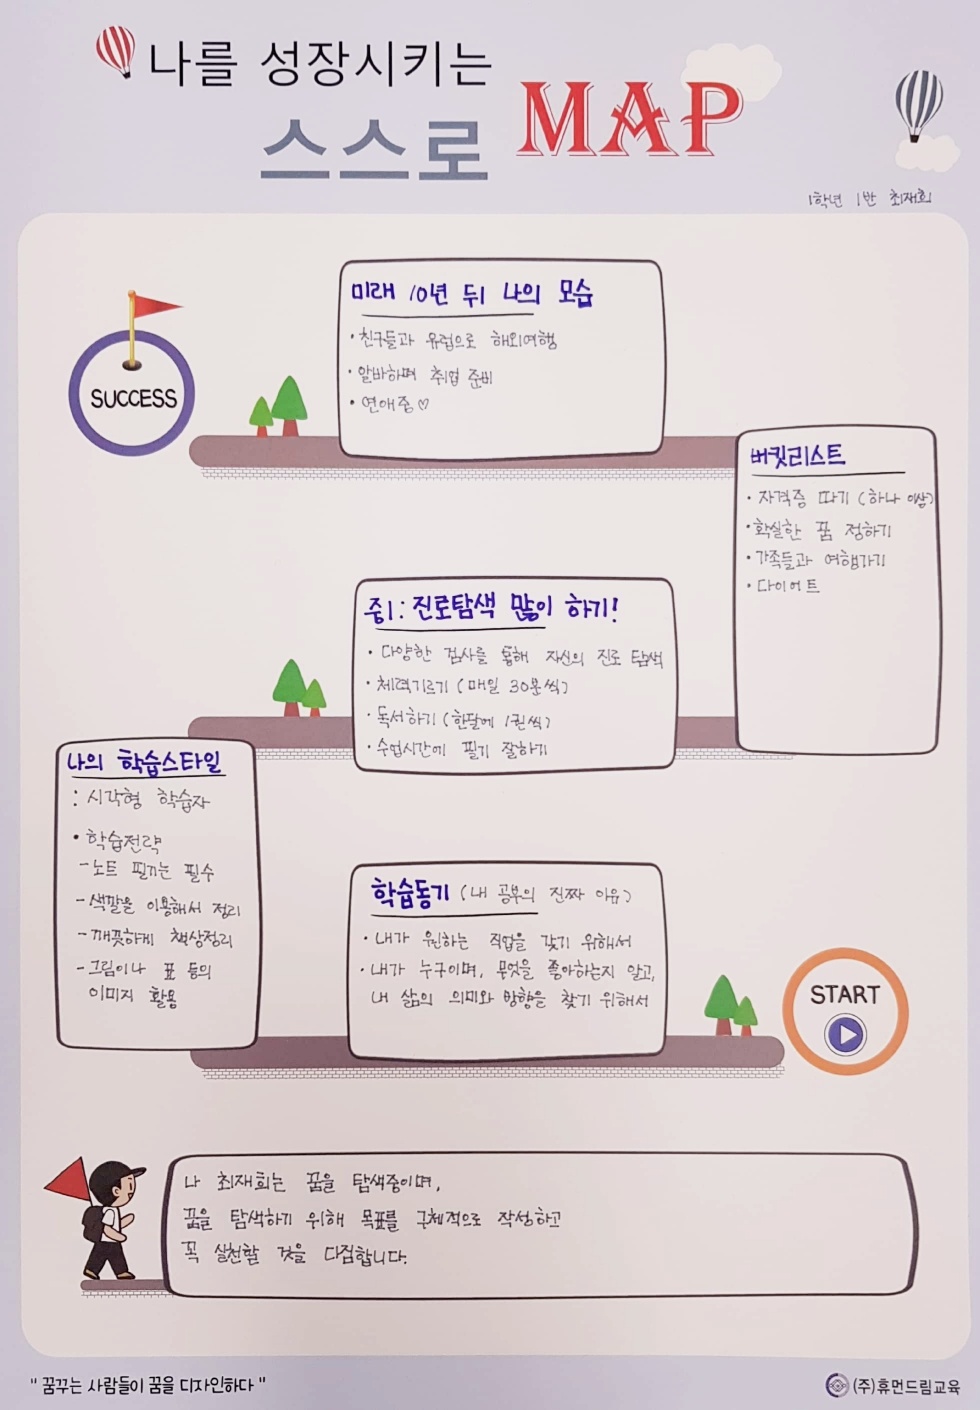 나를 성장시키는
스스로 MAP
1학년 1반 최재희
SUCCESS
미래 10년 뒤 나의 모습
• 친구들과 유럽으로 해외여행
• 알바하며 취업 준비
• 연애중♡
버킷리스트
• 자격증 따기 (하나 이상)
• 확실한 꿈 정하기
• 가족들과 여행가기
• 다이어트
중1: 진로탐색 많이 하기!
• 다양한 검사를 통해 자신의 진로 탐색
• 체력기르기 (매일 30분씩)
• 독서하기 (한달에 1권씩)
• 수업시간에 필기 잘하기
나의 학습스타일
: 시각형 학습자
• 학습전략
- 노트 필기는 필수
- 색깔을 이용해서 정리
- 깨끗하게 책상정리
- 그림이나 표 등의
이미지 활용
학습동기 (내 공부의 진짜 이유)
• 내가 원하는 직업을 갖기 위해서
• 내가 누구이며, 무엇을 좋아하는지 알고,
내 삶의 의미와 방향을 찾기 위해서
START
나 최재희는 꿈을 탐색중이며,
꿈을 탐색하기 위해 목표를 구체적으로 작성하고
꼭 실천할 것을 다짐합니다.
" 꿈꾸는 사람들이 꿈을 디자인하다 "
(주)휴먼드림교육